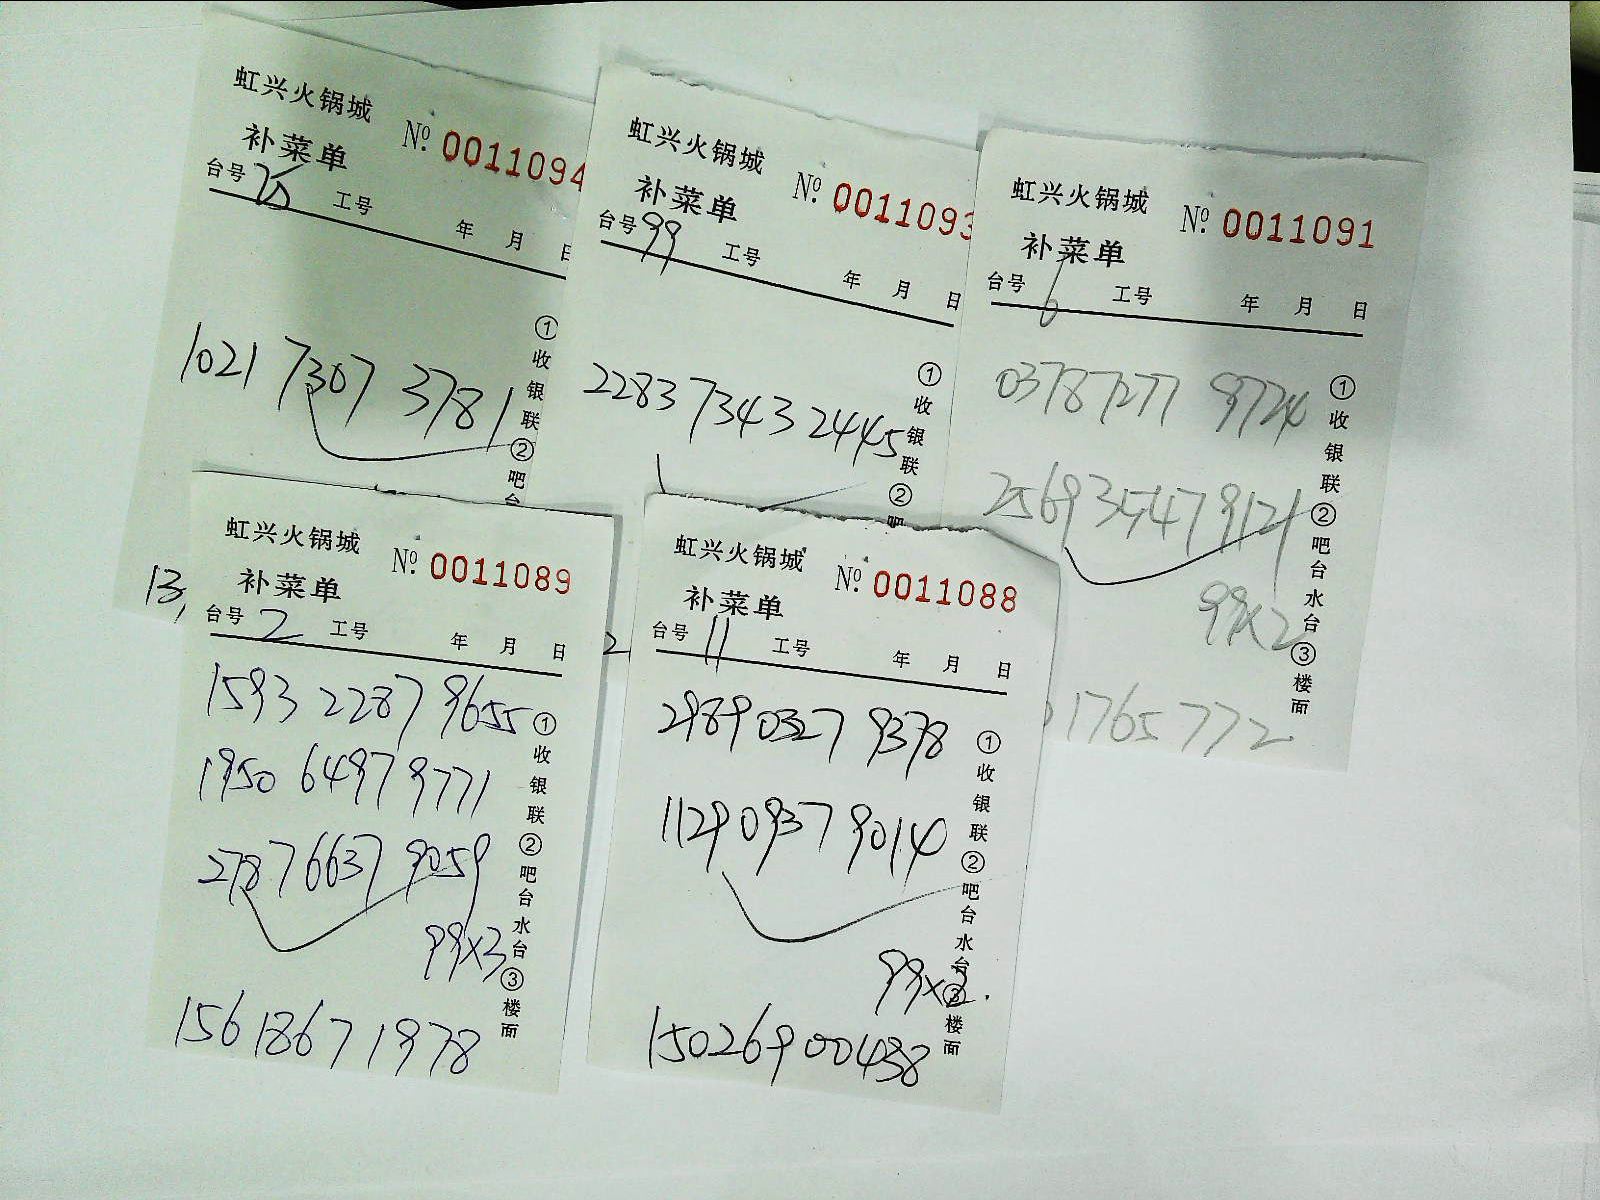 虹兴火锅城
补菜单
№ 0011094
台号 25 工号 年 月 日
1021 7307 3781
①收银联②吧台
13,
虹兴火锅城
补菜单
№ 0011093
台号 99 工号 年 月 日
2283 7343 2445
①收银联②吧
2
虹兴火锅城
补菜单
№ 0011091
台号 6 工号 年 月 日
0378 7277 9724
2569 3547 9121
99x2
1765 772
①收银联②吧台水台③楼面
虹兴火锅城
补菜单
№ 0011089
台号 2 工号 年 月 日
1593 2287 9655
1950 6497 9771
2787 6637 9059
99x3
156 1867 1978
①收银联②吧台水台③楼面
虹兴火锅城
补菜单
№ 0011088
台号 11 工号 年 月 日
2989 0327 9378
1129 0937 9014
99x2.
15026900438
①收银联②吧台水台③楼面